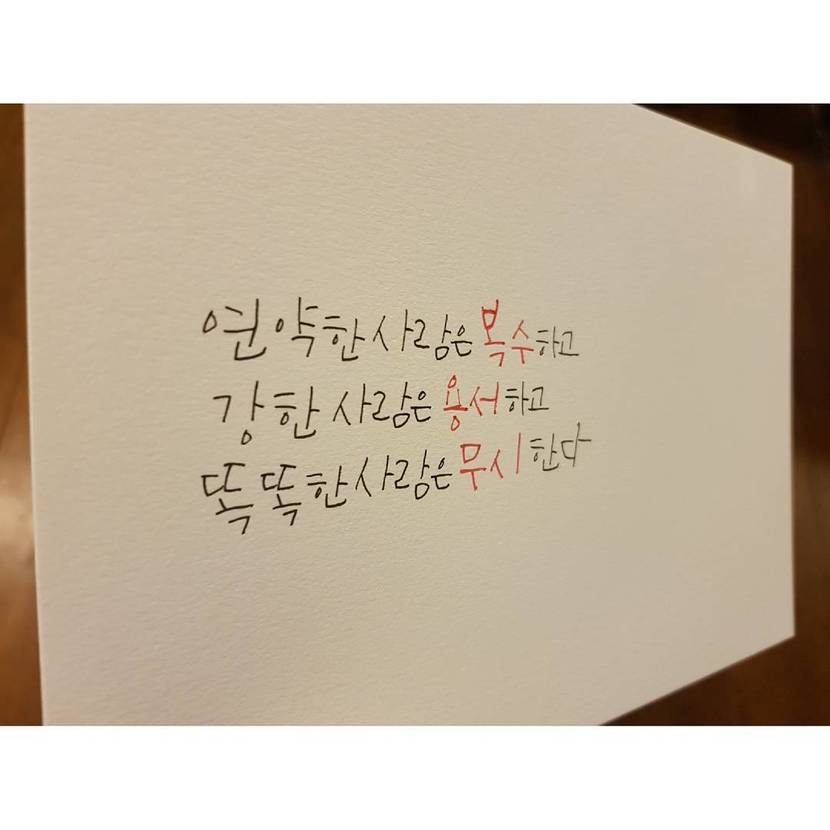 연약한 사람은 복수하고
강한 사람은 용서하고
똑똑한 사람은 무시한다